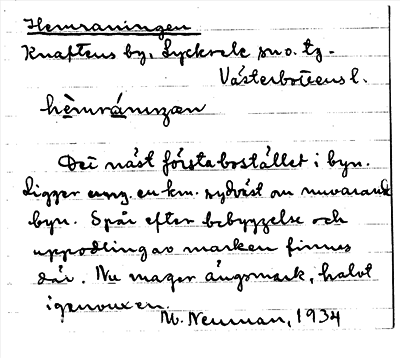 Hemraningen
Knaftens by, Lycksele sn o. tg.
Västerbottens l.
hèmránıŋæn
Det näst första bostället i byn.
Ligger ung. en km. sydväst om nuvarande
byn. Spår efter bebyggelse och
uppodling av marken finnes
där. Nu mager ängsmark, halvt
igenvuxen.
W. Neuman, 1934